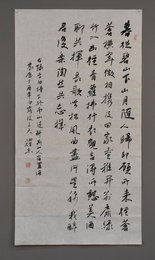 暮從碧山下山月隨人歸卻顧所來徑蒼
蒼橫翠微相攜及田家童稚開荊扉綠
竹入幽徑青蘿拂行衣歡言得所憩美酒
聊共揮長歌吟松風曲盡河星稀我醉
君復樂陶然共忘機
李白詩下終南山過斛斯山人宿置酒